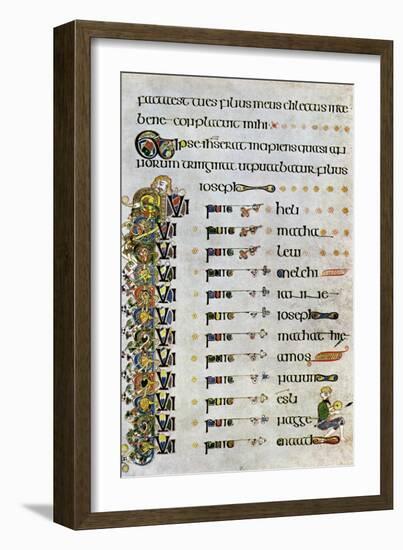 facta est tu es filius meus dilectus in te
bene conplacuit mihi
Et ipse ihs erat incipiens quasi an
norum triginta ut putabatur filius
ioseph
Qui fuit heli
Qui fuit matha
Qui fuit levi
Qui fuit melchi
Qui fuit
Qui fuit ioseph
Qui fuit mathathie
Qui fuit amos
Qui fuit nauum
Qui fuit esli
Qui fuit nagge
Qui fuit maath